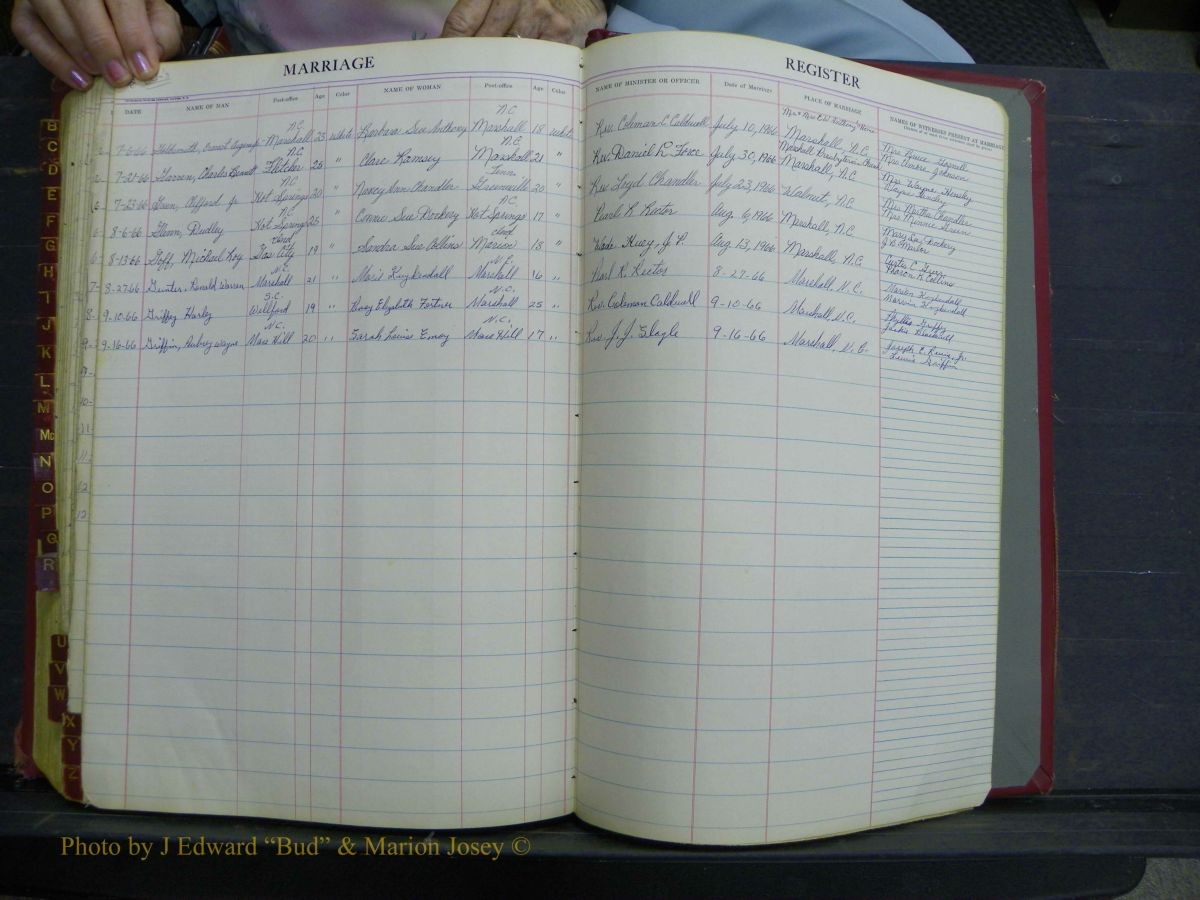 MARRIAGE
REGISTER
DATE NAME OF MAN Post-office Age Color NAME OF WOMAN Post-office Age Color NAME OF MINISTER OR OFFICER Date of Marriage PLACE OF MARRIAGE NAMES OF WITNESSES PRESENT AT MARRIAGE
N.C. N.C.
7-6-66 Goldsmith, Marshall 23 white Barbara Sue Anthony Marshall 18 white Rev. Coleman C Caldwell July 10, 1966 Marshall, N.C. Mrs
N.C. N.C. Marshall Presbyterian Church Johnson
7-21-66 Garren, Charles Fletcher 28 " Clare Ramsey Marshall 21 " Rev. Daniel R. Force July 30, 1966 Marshall, N.C. Mrs Wayne Hensley
N.C. Tenn Wayne Hensley
7-23-66 Green, Clifford Jr Hot Springs 20 " Nancy Ann Chandler Greeneville 20 " Rev Loyd Chandler July 23, 1966 Walnut, N.C. Mrs Martha Chandler
N.C. N.C. Mrs Minnie Green
8-6-66 Gunn, Dudley Hot Springs 25 " Connie Sue Dockery Hot Springs 17 " Pearl R Rector Aug. 6, 1966 Marshall, N.C. Mary Lou Dockery
Ind Ind
8-13-66 Goff, Michael Roy Gas City 19 " Sandra Sue Collins Marion 18 " Wade Huey, J.P. Aug 13, 1966 Marshall, N.C. Curtis C. Goff
N.C. N.C. Sharon R. Collins
8-27-66 Gunter, Ronald Warren Marshall 21 " Marie Kuykendall Marshall 16 " Pearl R. Rector 8-27-66 Marshall, N.C. Marion Kuykendall
S.C. N.C. Marvin Kuykendall
9-10-66 Griffey Harley Wellford 19 " Roxy Elizabeth Fortner Marshall 25 " Rev. Coleman Caldwell 9-10-66 Marshall N.C. Phyllis Griffey
N.C. N.C. Jackie
9-16-66 Griffin, Aubrey Wayne Mars Hill 20 " Sarah Louise Emory Mars Hill 17 " Rev. J. J. Slagle 9-16-66 Marshall, N.C. Joseph E. Jr.
Lewis Griffin
9-
10-
11-
11-
12
12
B
C
D
E
F
G
H
I
J
K
L
M
Mc
N
O
P
Q
R
U
V
W
X
Y
Z
Photo by J Edward “Bud” & Marion Josey ©